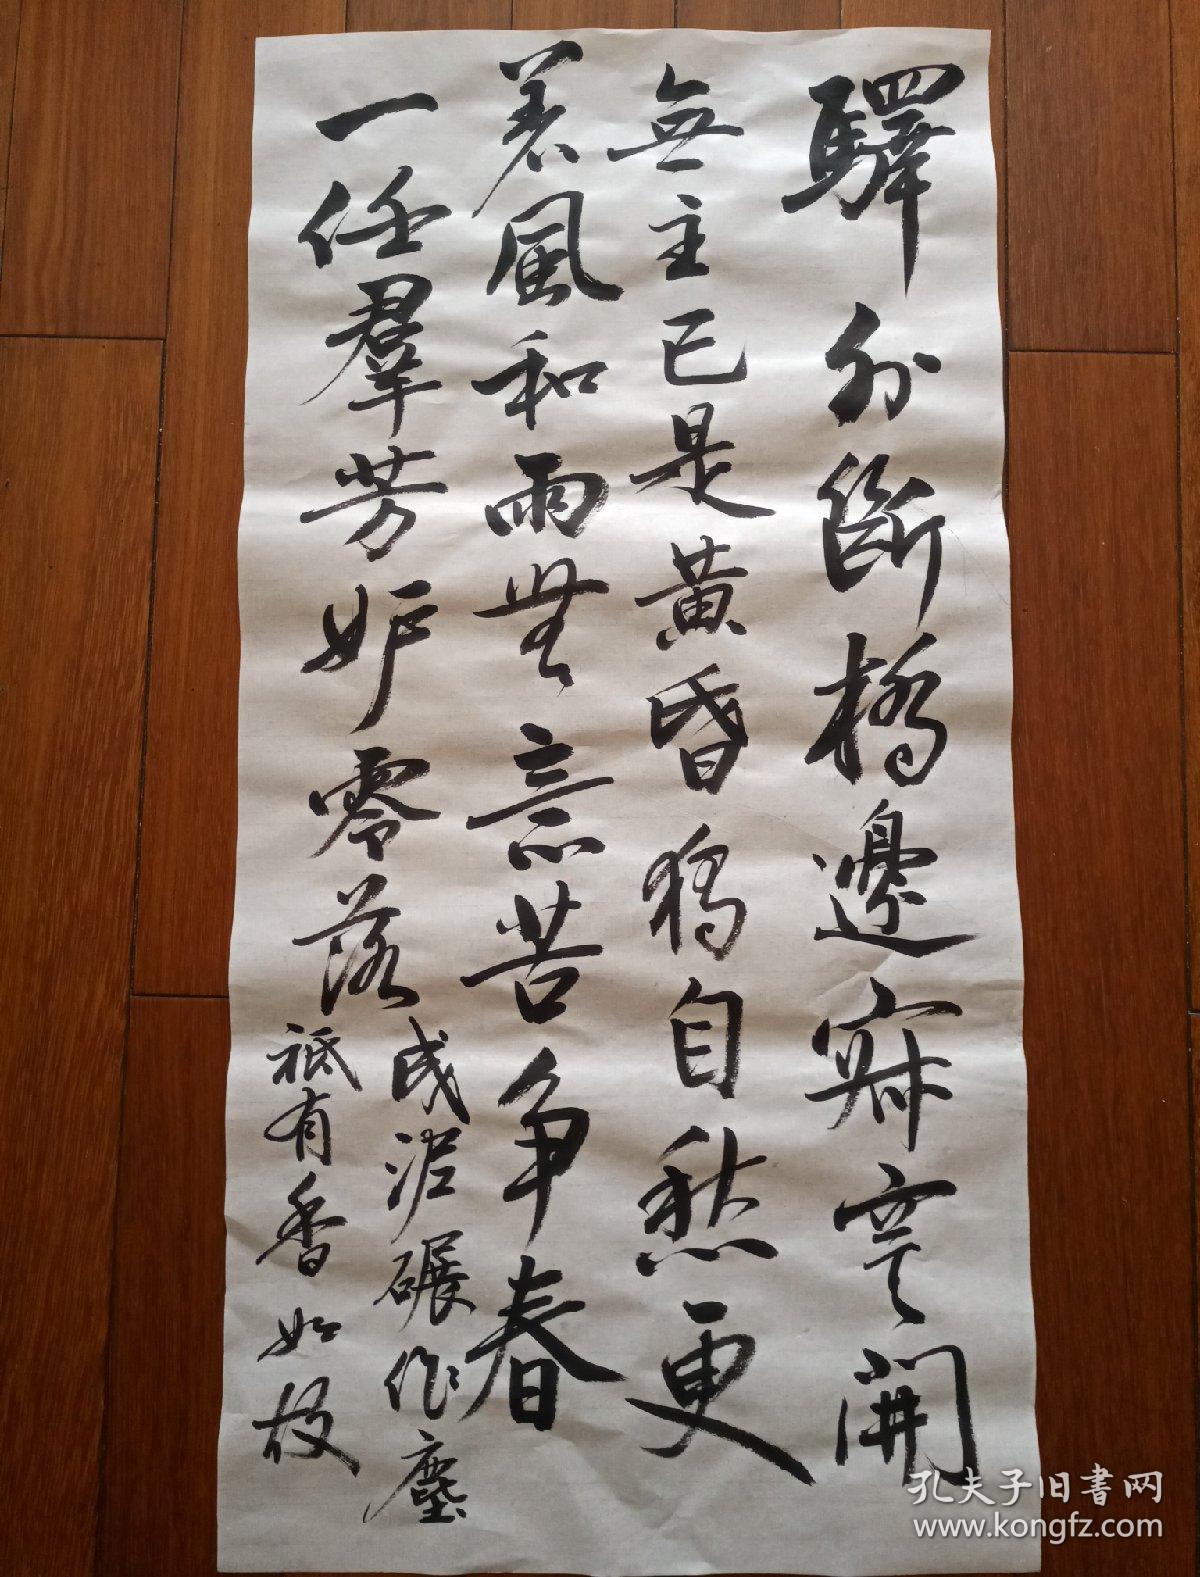 驛外斷橋邊寂寞開
無主已是黃昏獨自愁更
著風和雨無意苦爭春
一任羣芳妒零落
成泥碾作塵
祗有香如故
孔夫子旧書网
www.kongfz.com